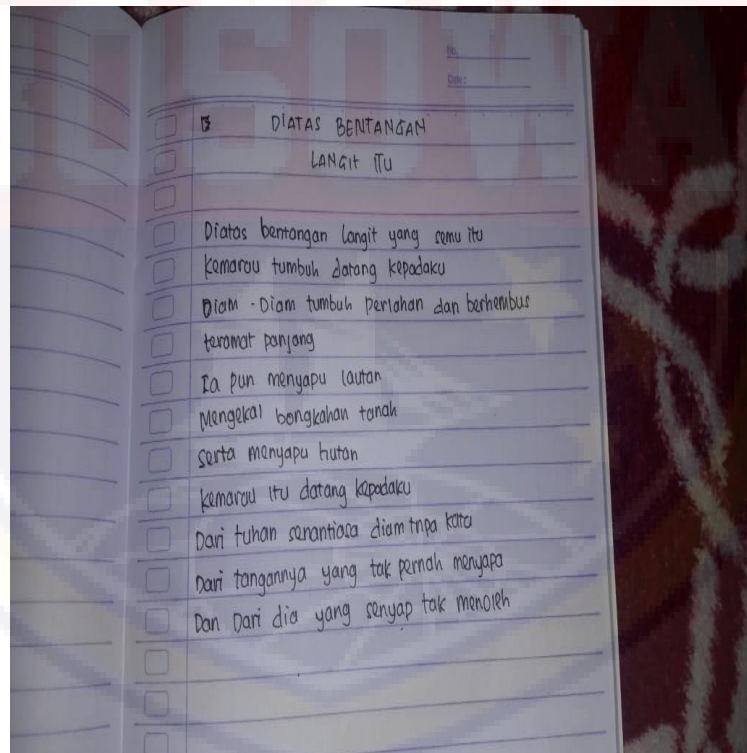 BOSOWA
No.
Date:
DIATAS BENTANGAN
LANGIT ITU
Diatas bentangan langit yang semu itu
kemarau tumbuh datang kepadaku
Diam - Diam tumbuh perlahan dan berhembus
teramat panjang
Ia pun menyapu lautan
Mengekal bongkahan tanah
serta menyapu hutan
kemarau itu datang kepadaku
Dari tuhan senantiasa diam tnpa kata
Dari tangannya yang tak pernah menyapa
Dan Dari dia yang senyap tak menoleh